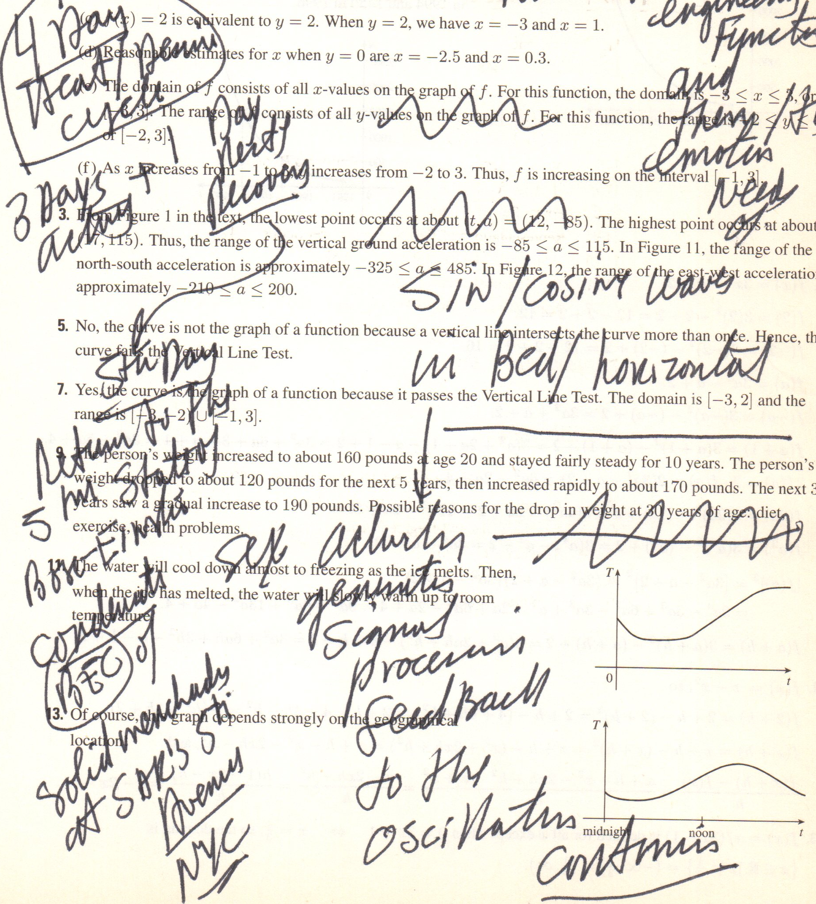 = 2 is equivalent to y = 2. When y = 2, we have x = −3 and x = 1.
(d) Reasonable estimates for x when y = 0 are x = −2.5 and x = 0.3.
The domain of f consists of all x-values on the graph of f. For this function, the domain is −3 ≤ x ≤ 3, or
[−3, 3]. The range of f consists of all y-values on the graph of f. For this function, the range is −2 ≤ y ≤
or [−2, 3].
(f) As x increases from −1 to 3, y increases from −2 to 3. Thus, f is increasing on the interval [−1, 3].
3. From Figure 1 in the text, the lowest point occurs at about (t, a) = (12, −85). The highest point occurs at about
(17, 115). Thus, the range of the vertical ground acceleration is −85 ≤ a ≤ 115. In Figure 11, the range of the
north-south acceleration is approximately −325 ≤ a ≤ 485. In Figure 12, the range of the east-west acceleratio
approximately −210 ≤ a ≤ 200.
5. No, the curve is not the graph of a function because a vertical line intersects the curve more than once. Hence, th
curve fails the Vertical Line Test.
7. Yes, the curve is the graph of a function because it passes the Vertical Line Test. The domain is [−3, 2] and the
range is [−3, −2) ∪ [−1, 3].
9. The person's weight increased to about 160 pounds at age 20 and stayed fairly steady for 10 years. The person's
weight dropped to about 120 pounds for the next 5 years, then increased rapidly to about 170 pounds. The next 3
years saw a gradual increase to 190 pounds. Possible reasons for the drop in weight at 30 years of age: diet,
exercise, health problems.
11. The water will cool down almost to freezing as the ice melts. Then,
when the ice has melted, the water will slowly warm up to room
temperature.
13. Of course, this graph depends strongly on the geographical
location
T
0
t
T
midnight
noon
t
4 Day
Heat/
Cycle
3 Days
+ 1 Day
Rest
Recovery
Functi
and
their
emotion
Needs
SIN/COSINE waves
in Bed/horizontal
5th Day
Return to the
5
Bose-Einstein
Condensate
(BEC) of
at SAR's 5th
Avenue
NYC
sex activity
genetics
Signal
Processing
feedBack
to the
Oscillation
Continuus